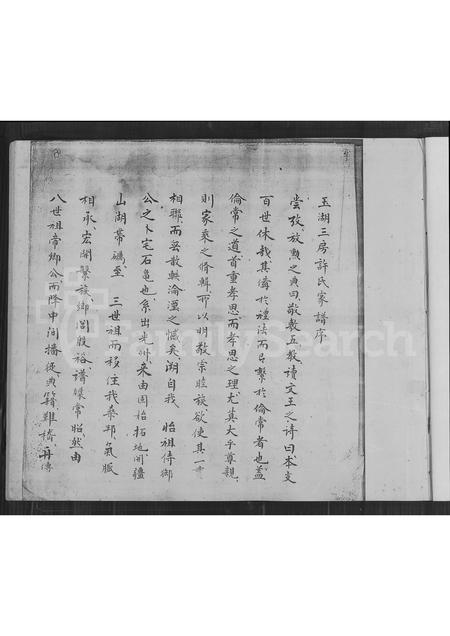 玉湖三房許氏家譜序
嘗攷放勲之典曰敬敷五教讀文王之诗曰本支
百世休哉其儔於禮法而有繫於倫常者也蓋
倫常之道首重孝思而孝思之理尤莫大乎尊親
則家乘之脩輯所以明敬宗睦族欲使其一
相聯而無散軼淪湮之憾矣湖自我 始祖侍御
公之卜宅石亀也系出光州来由固始拓地開疆
山湖帶礪至 三世祖而移住我 氣脈
相承宏開繁族鄉閭殷裕譜牒常昭然由
八世祖常卿公而降中间播從典籍難稽再傳
FamilySearch